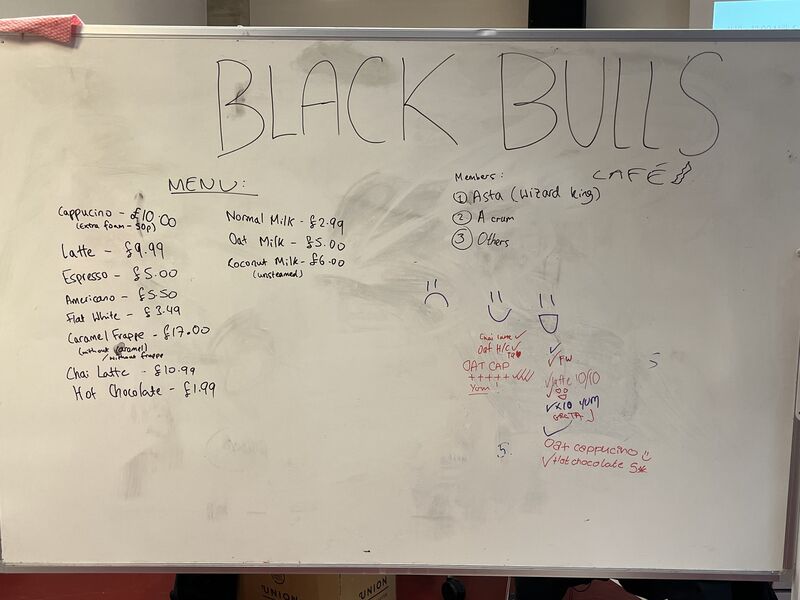 BLACK BULLS
CAFÉ
MENU:
Cappucino - £10.00
(Extra foam - 50p)
Latte - £9.99
Espresso - £5.00
Americano - £5.50
Flat White - £3.49
Caramel Frappe - £17.00
(without caramel)
/without frappe
Chai Latte - £10.99
Hot Chocolate - £1.99
Normal Milk - £2.99
Oat Milk - £5.00
Coconut Milk - £6.00
(unsteamed)
Members:
1 Asta (Wizard king)
2 A crum
3 Others
Chai latte ✓
Oat H/C ✓
OAT CAP
+++++ ✓✓✓✓
Yum!
✓
✓ FW
✓ latte 10/10
✓
✓ x10 yum
✓
Oat cappucino
✓ Hot chocolate 5*
5
5.
UNION
UNION